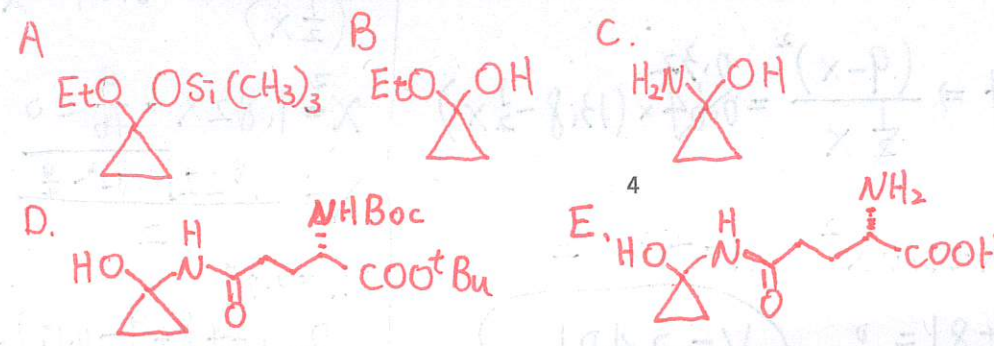 A
EtO OSi(CH3)3
B
EtO OH
C.
H2N OH
4
D.
HO H N O NHBoc COOtBu
E.
HO H N O NH2 COOH